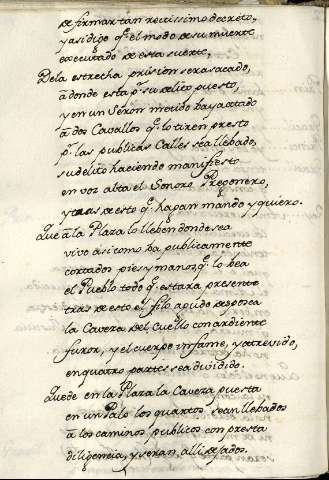 de firmar tan rectissimo decreto,
y asi digo q.e el modo de su muerte
executado de esta suerte,
De la estrecha prision sera sacado,
a donde esta p.r su delito puesto,
y en un Seron metido baya atado
a dos Cavallos q.e lo tiren presto
p.r las publicas Calles sea llebado,
su delito haciendo manifiesto
en voz alta el Sonoro Pregonero,
y tras de esto q.e hagan mando y quiero.
Que a la Plaza lo lleben donde sea
vivo asi como ba publicamente
cortados pies y manos q.e lo bea
el Pueblo todo q.e estara presente
tras de esto el filo agudo desposea
la Caveza del Cuello con ardiente
furor, y el cuerpo infame, y atrevido,
en quatro partes sea dividido.
Quede en la Plaza la Caveza puesta
en un Palo los quartos sean llebados
a los caminos publicos con presta
diligencia, y seran, alli dejados.